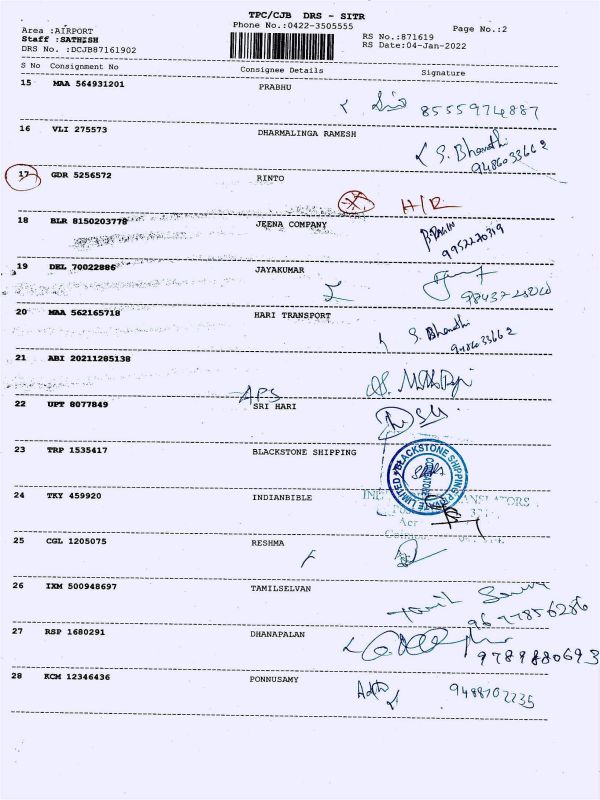 TPC/CJB DRS - SITR
Phone No.:0422-3505555
Page No.:2
Area :AIRPORT
Staff :SATHISH
DRS No. :DCJB87161902
RS No.:871619
RS Date:04-Jan-2022
S No Consignment No Consignee Details Signature
15 MAA 564931201 PRABHU
8555974887
16 VLI 275573 DHARMALINGA RAMESH
S. Bharathi
9486033662
17 GDR 5256572 RINTO
H/R
18 BLR 8150203778 JEENA COMPANY
9952270319
19 DEL 70022886 JAYAKUMAR
20 MAA 562165718 HARI TRANSPORT
S. Bharathi
9486033662
21 ABI 20211285138
APS
22 UPT 8077849 SRI HARI
23 TRP 1535417 BLACKSTONE SHIPPING
BLACKSTONE SHIPPING PRIVATE LIMITED
24 TKY 459920 INDIANBIBLE
TRANSLATORS
25 CGL 1205075 RESHMA
26 IXM 500948697 TAMILSELVAN
Tamil
9677856286
27 RSP 1680291 DHANAPALAN
9789880693
28 KCM 12346436 PONNUSAMY
9488102235